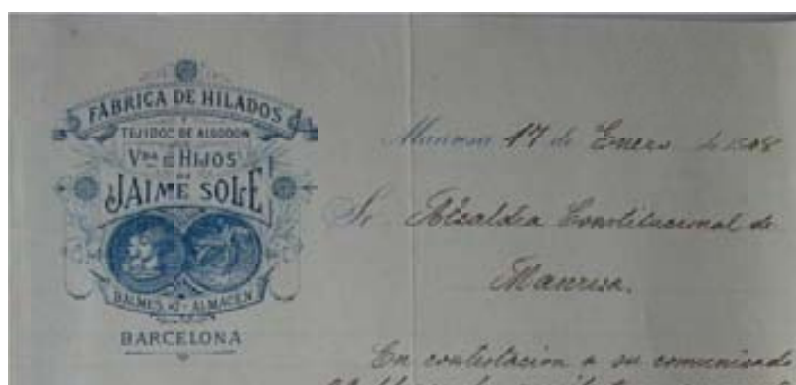 FÁBRICA DE HILADOS
Y
TEJIDOS DE ALGODON
VDA. É HIJOS
DE
JAIME SOLÉ
BALMES ALMACEN
BARCELONA
Manresa 17 de Enero de 1908
Sr. Alcalde Constitucional de
Manresa.
En contestacion a su comunicado